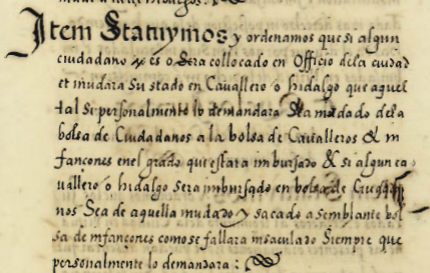 Item Statuymos y ordenamos que si algun
ciudadano es o sera collocado en Officio dela ciudad
et mudara su stado en Cauallero o hidalgo que aquel
tal si personalmente lo demandara Sea mudado dela
bolsa de Ciudadanos a la bolsa de Caualleros & in
fançones enel grado que estara imbursado & si algun ca
uallero o hidalgo sera imbursado en bolsa de Ciudada
nos Sea de aquella mudado y sacado a semblante bol
sa de infançones como se fallara insaculado Siempre que
personalmente lo demandara :